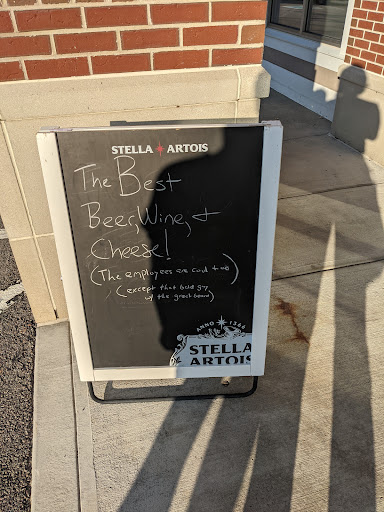 STELLA ARTOIS
The Best
Beer, Wine, +
Cheese!
(The employees are cool too)
(except that bald guy
w/ the great beard)
ANNO 1366
STELLA
ARTOIS